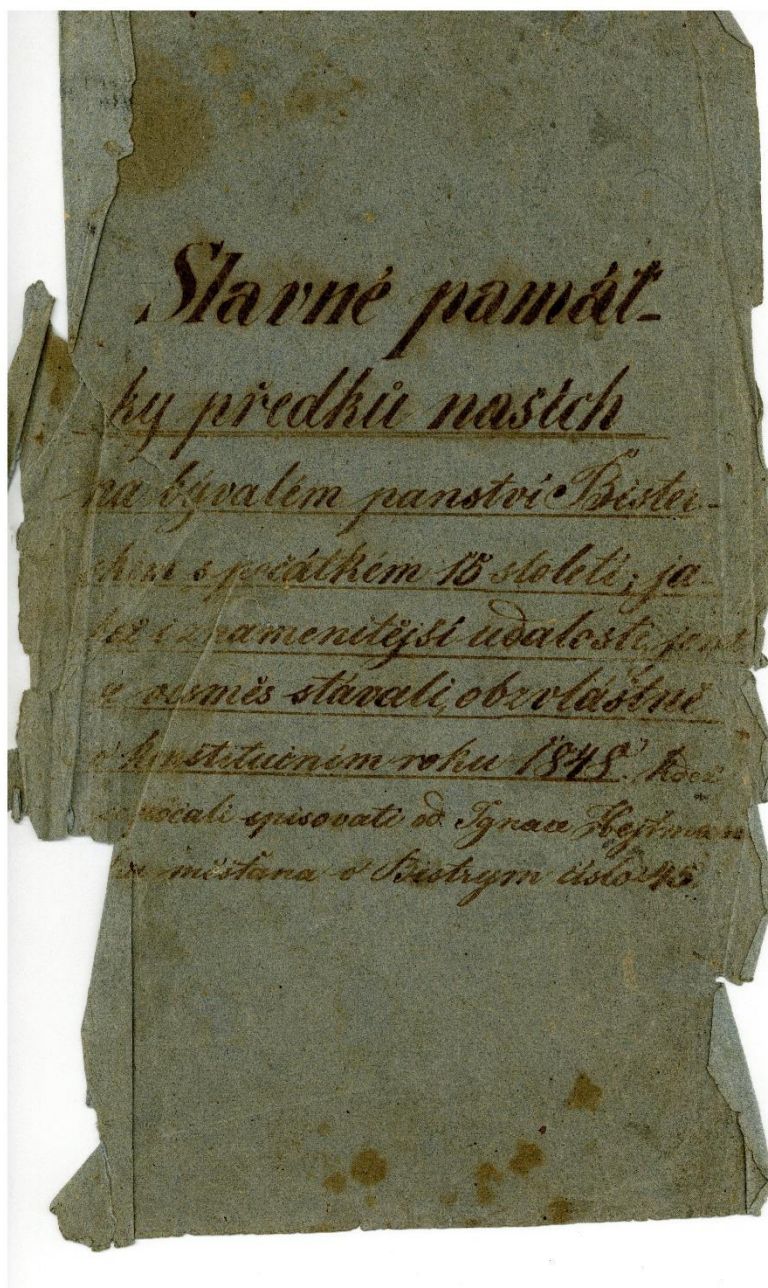 Slavné památ-
ky předků našich
na bývalém panství Bister-
s počátkém 15 století; ja-
i znamenitější udalosti,
vesměs stávali, obzvláštně
v konstitučním roku 1848.
spisovati od Ignace
měšťana v Bistrym číslo 45.